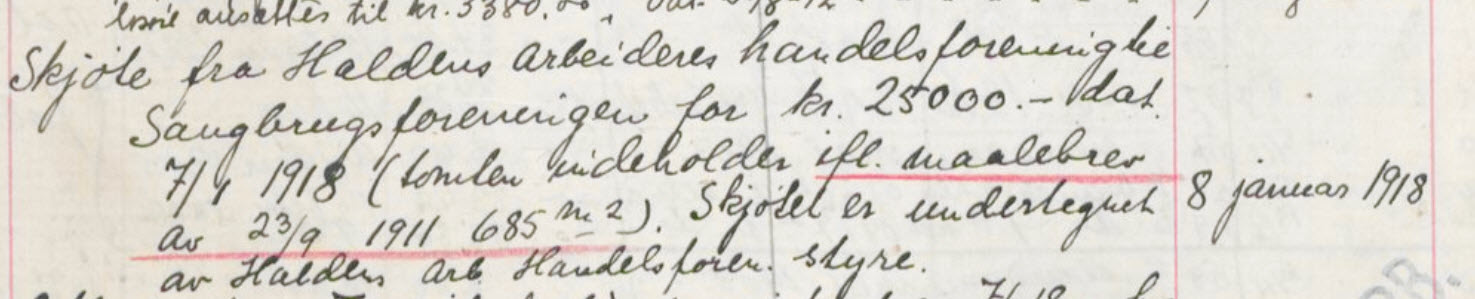 ansættes til kr. 3380.00,
Skjøte fra Haldens arbeideres handelsforening til
Saugbrugsforeningen for kr. 25000.- dat.
7/1 1918 (tomten indeholder ifl. maalebrev
av 23/9 1911 685 m2). Skjøtet er undertegnet 8 januar 1918
av Haldens arb. Handelsforen. styre.